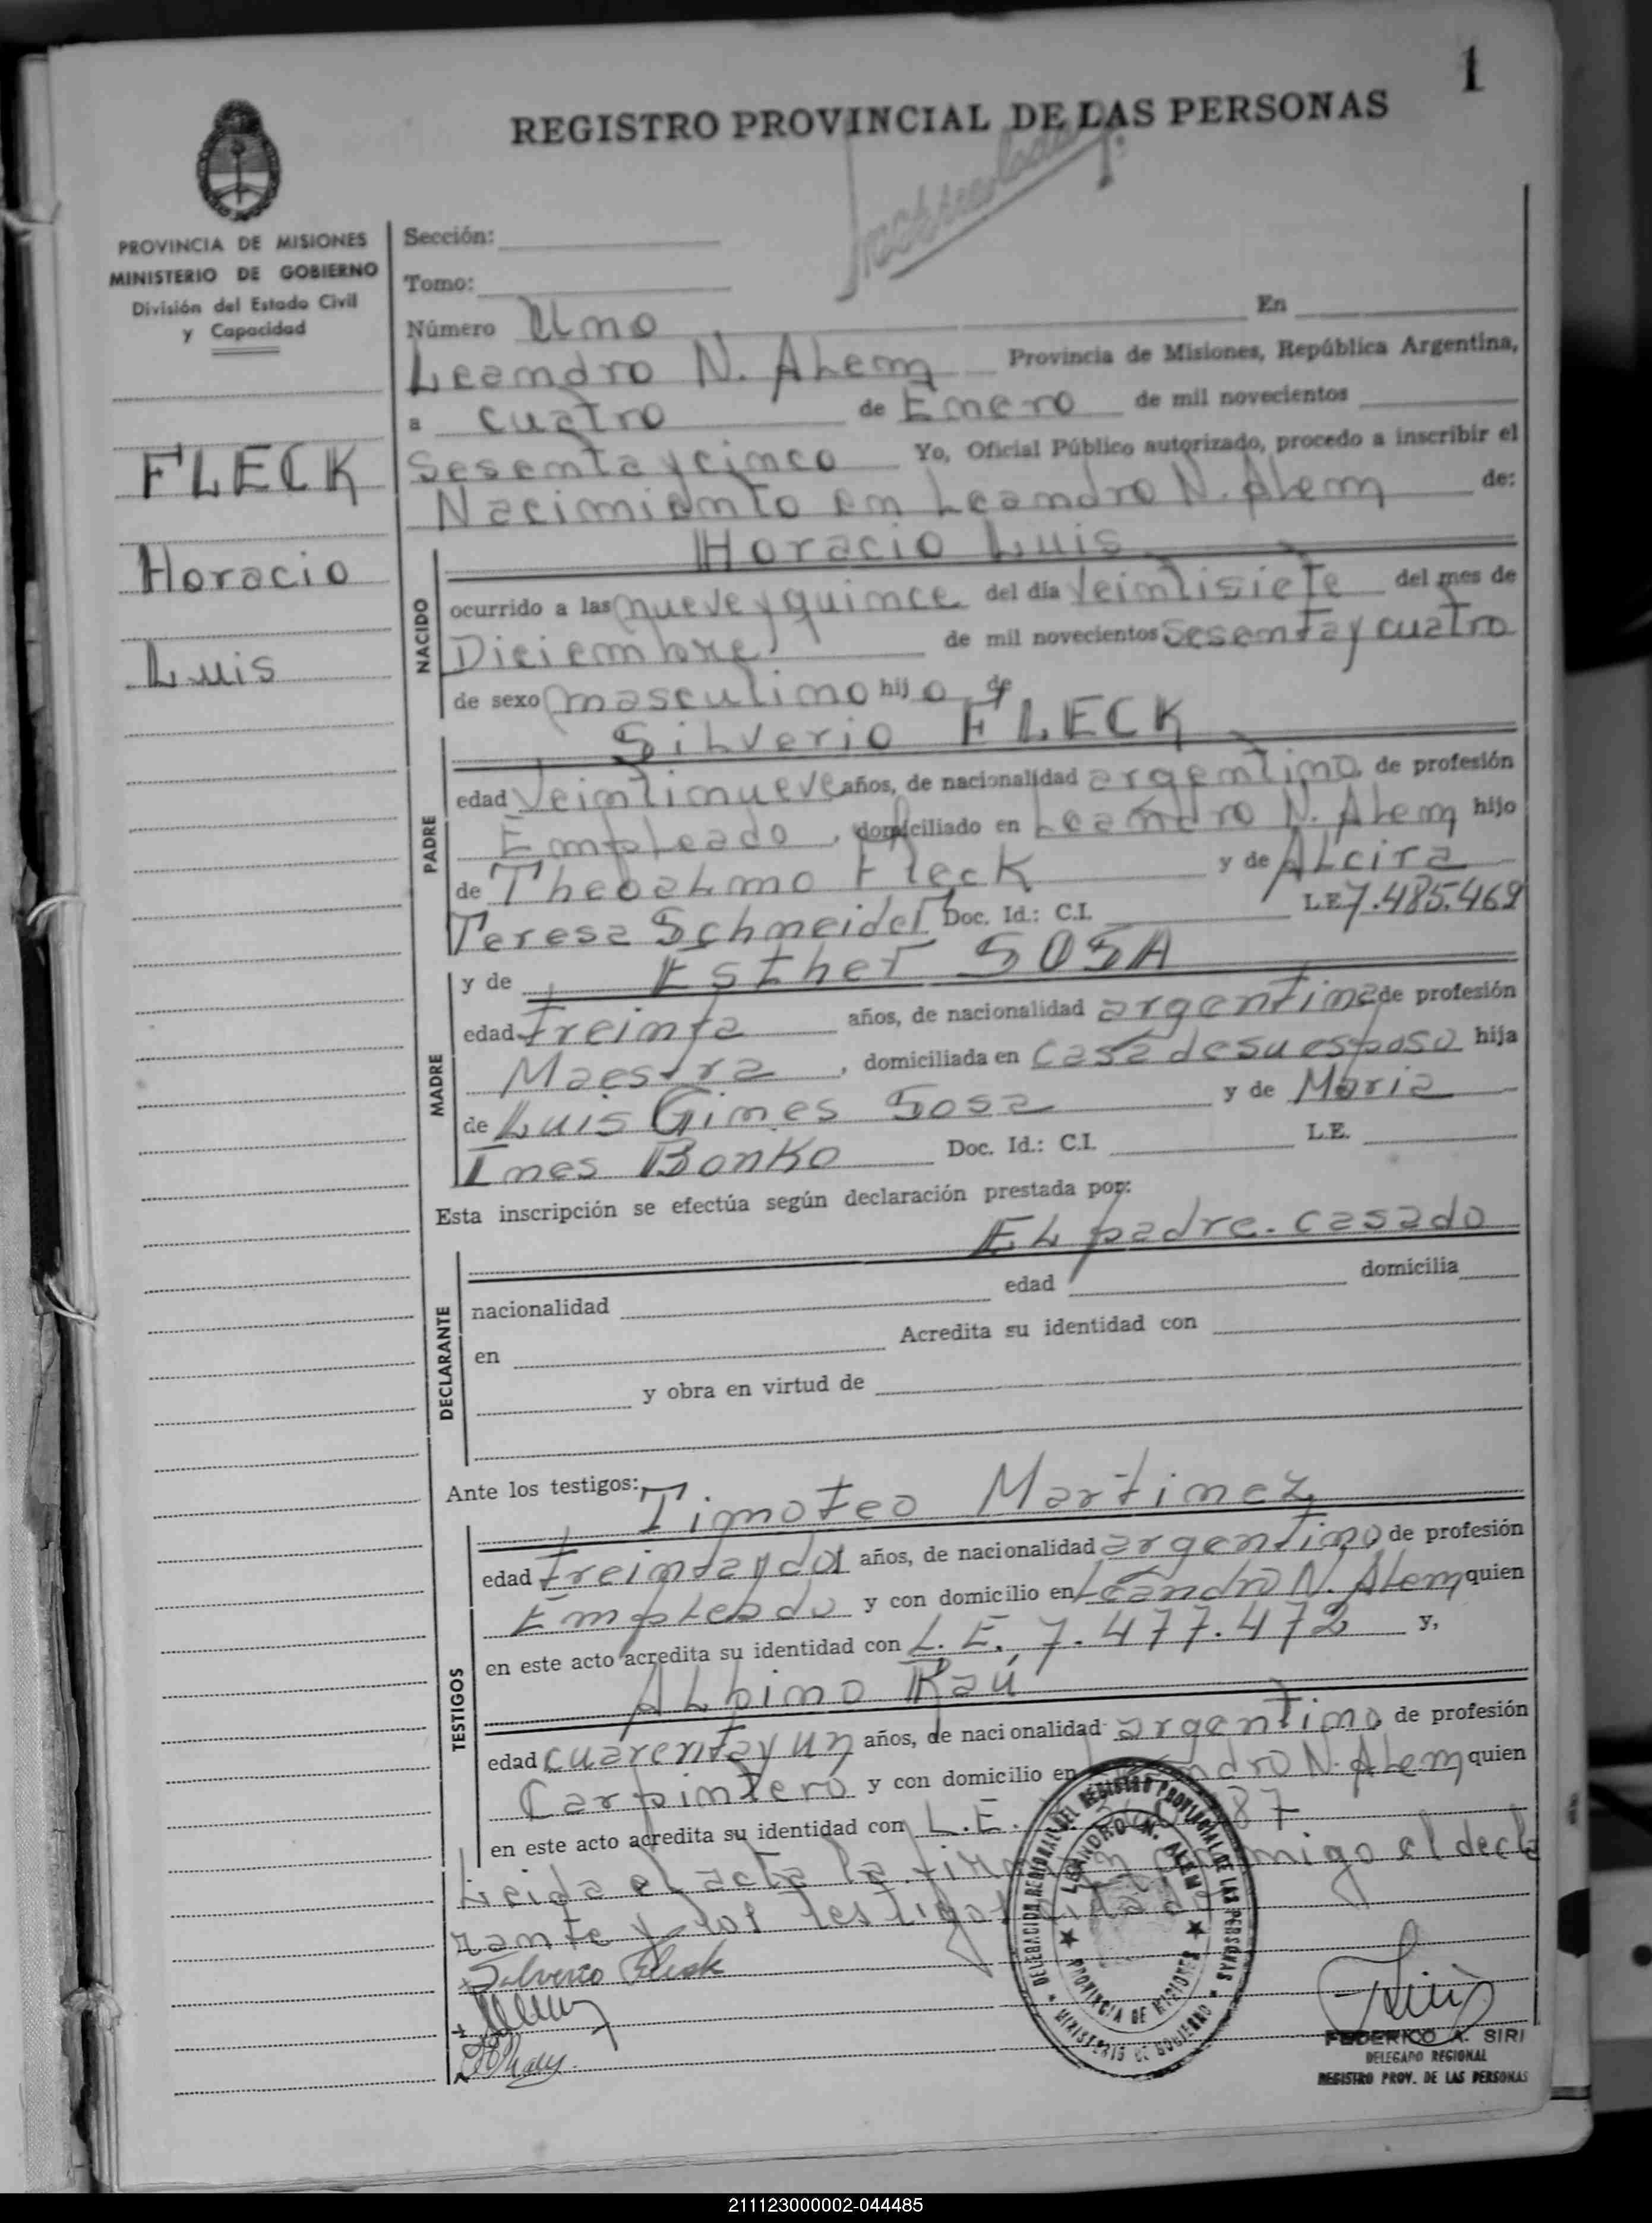 1
REGISTRO PROVINCIAL DE LAS PERSONAS
PROVINCIA DE MISIONES
MINISTERIO DE GOBIERNO
División del Estado Civil
y Capacidad
FLECK
Horacio
Luis
Sección:
Tomo:
Número Uno En
Leandro N. Alem Provincia de Misiones, República Argentina,
a cuatro de Enero de mil novecientos
Sesenta y cinco Yo, Oficial Público autorizado, procedo a inscribir el
Nacimiento en Leandro N. Alem de:
Horacio Luis
NACIDO
ocurrido a las nueve y quince del día Veintisiete del mes de
Diciembre de mil novecientos Sesenta y cuatro
de sexo masculino hijo de
Silverio FLECK
PADRE
edad Veintinueve años, de nacionalidad argentino, de profesión
Empleado, domiciliado en Leandro N. Alem hijo
de Theobaldo Fleck y de Alcira
Teresa Schneider Doc. Id.: C.I. L.E. 7.485.469
y de Esther SOSA
MADRE
edad treinta años, de nacionalidad argentina de profesión
Maestra, domiciliada en casa de su esposo hija
de Luis Gines Sosa y de Maria
Ines Bonko Doc. Id.: C.I. L.E.
Esta inscripción se efectúa según declaración prestada por:
El padre. casado
DECLARANTE
edad domicilia
nacionalidad
en Acredita su identidad con
y obra en virtud de
Ante los testigos: Timoteo Martinez
TESTIGOS
edad treinta y dos años, de nacionalidad argentino, de profesión
Empleado y con domicilio en Leandro N. Alem quien
en este acto acredita su identidad con L.E. 7.477.472 y,
Albino Raú
edad cuarenta y un años, de nacionalidad argentino, de profesión
Carpintero y con domicilio en Leandro N. Alem quien
en este acto acredita su identidad con L.E. 87
Leida el acta la firman conmigo el decla
rante y los testigos citados
Silverio Fleck
DELEGACION REGIONAL DEL REGISTRO PROVINCIAL DE LAS PERSONAS
LEANDRO N. ALEM
PROVINCIA DE MISIONES
MINISTERIO DE GOBIERNO
FEDERICO A. SIRI
DELEGADO REGIONAL
REGISTRO PROV. DE LAS PERSONAS
211123000002-044485